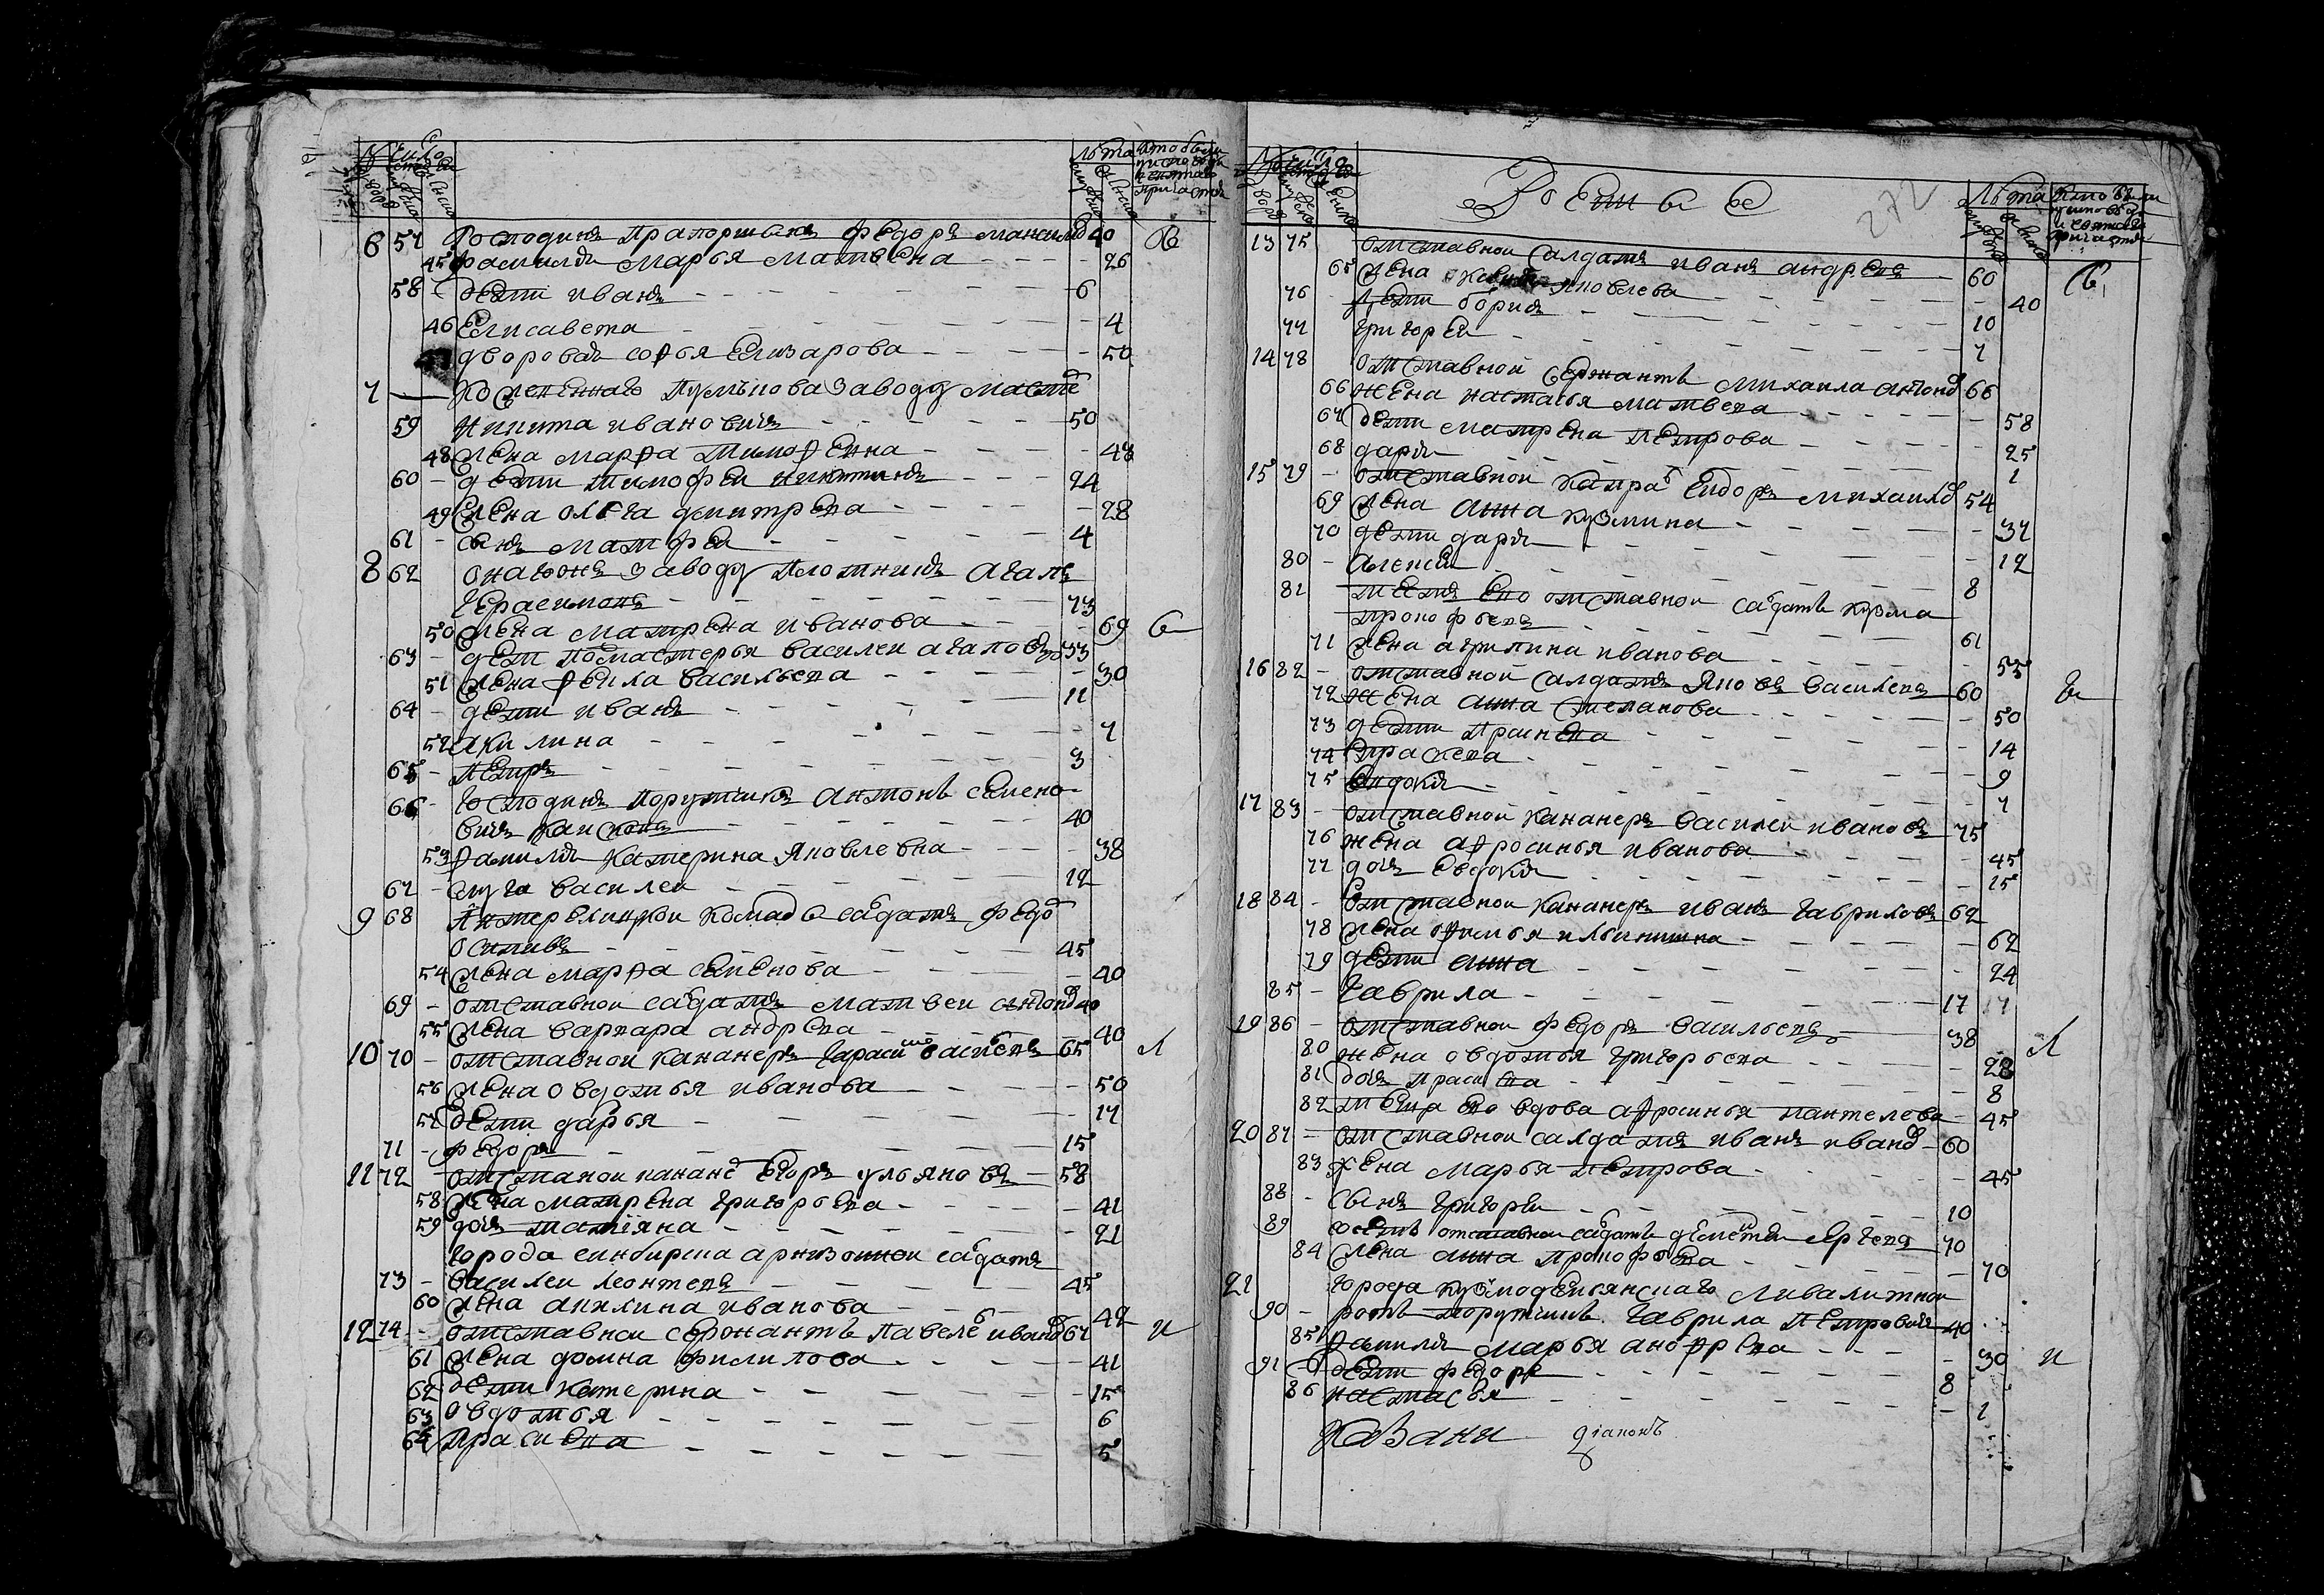 Число
лѣта
6 57 Господинъ Прапорщикъ Федоръ Максимо 40
45 фамилия Марья Матвевна - 26
58 - дети Иванъ - 6
46 Елисавета - 4
дворовая Софья Елизарова - 50
7 Заводу
59 Никита Ивановичь - 50
48 жена Марфа Тимофеина - 48
60 - дети Тимофеи Никитинъ - 24
49 жена Олга Дмитрева - 28
61 - сынъ Матфеи - 4
8 62 заводу плотникъ Агапъ
Герасимовъ - 73
50 жена Матрена Иванова - 69
63 - дети подмастерья Василеи Агаповъ 33
51 жена Фекла Васильева - 30
64 - дети Иванъ - 11
52 Акилина - 7
65 - Петръ - 3
66 - Господинъ Порутчикъ Антонъ Семено-
вичь - 40
53 фамилия Катерина Яковлевна - 38
67 - слуга Василеи - 12
9 68 салдатъ Федо
Осиповъ - 45
54 жена Марфа Семенова - 40
69 - отставнои салдатъ Матвеи 40
55 жена Варвара Андрева - 40
10 70 - отставнои кананеръ Гарасимъ Васильевъ 65
56 жена Овдотья Иванова - 50
57 дети Дарья - 17
71 - Федоръ - 15
11 72 отставнои канане Егоръ Ульяновъ - 58
58 жена Матрена Григорьева - 41
59 дочь Татіяна - 21
города Синбирска салдатъ
73 - Василеи Леонтевъ - 45
60 жена Акилина Иванова - 42
12 74 - отставнои сержантъ Павелъ Ивано 67
61 жена Домна Филипова - 41
62 дети Катерина - 15
63 Овдотья - 6
64 Прасковя - 5
Военные
272
лѣта
13 75 отставнои салдатъ Иванъ Андреевъ - 60
65 жена Яковлева - 40
76 - дети Борисъ - 10
77 Григореи - 7
14 78 отставнои сержантъ Михаила 66
66 жена Настасья Матвева - 58
67 дети Матрена Петрова - 25
68 Дарья - 1
15 79 - отставнои капра Михаило 54
69 жена Анна Кузмина - 37
70 дети Дарья - 12
80 - Алексеи - 8
81 - тестя ево отставнои салдатъ Кузма
Прокофьевъ - 61
71 жена Агрипина Иванова - 55
16 82 - отставнои салдатъ Яковъ Василевъ 60
72 жена Анна Степанова - 50
73 дети Прасковя - 14
74 - 9
75 Евдокия - 7
17 83 - отставнои кананеръ Василеи Ивановъ 75
76 жена Афросинья Иванова - 45
77 дочь Овдокия - 15
18 84 - отставнои кананеръ Иванъ Гавриловъ 62
78 жена Ильинишна - 62
79 дети Анна - 24
85 - Гаврила - 17 17
19 86 - отставнои Федоръ Васильевъ - 38
80 жена Овдотья Григорьева - 28
81 дочь Прасковя - 8
82 теща ево вдова Афросинья Пантелева - 45
20 87 - отставнои салдатъ Иванъ Ивано - 60
83 жена Марья Петрова - 45
88 - сынъ Григореи - 10
89 отставнои салдатъ Дементеи Сергевъ 70
84 жена Анна Прокофьева - 70
21 города Кузмодемьянскаго
90 - порутчикъ Гаврила Петровичь 40
85 фамилия Марья Андревна - 30
91 дети Федоръ - 8
86 Настасья - 1
діаконъ